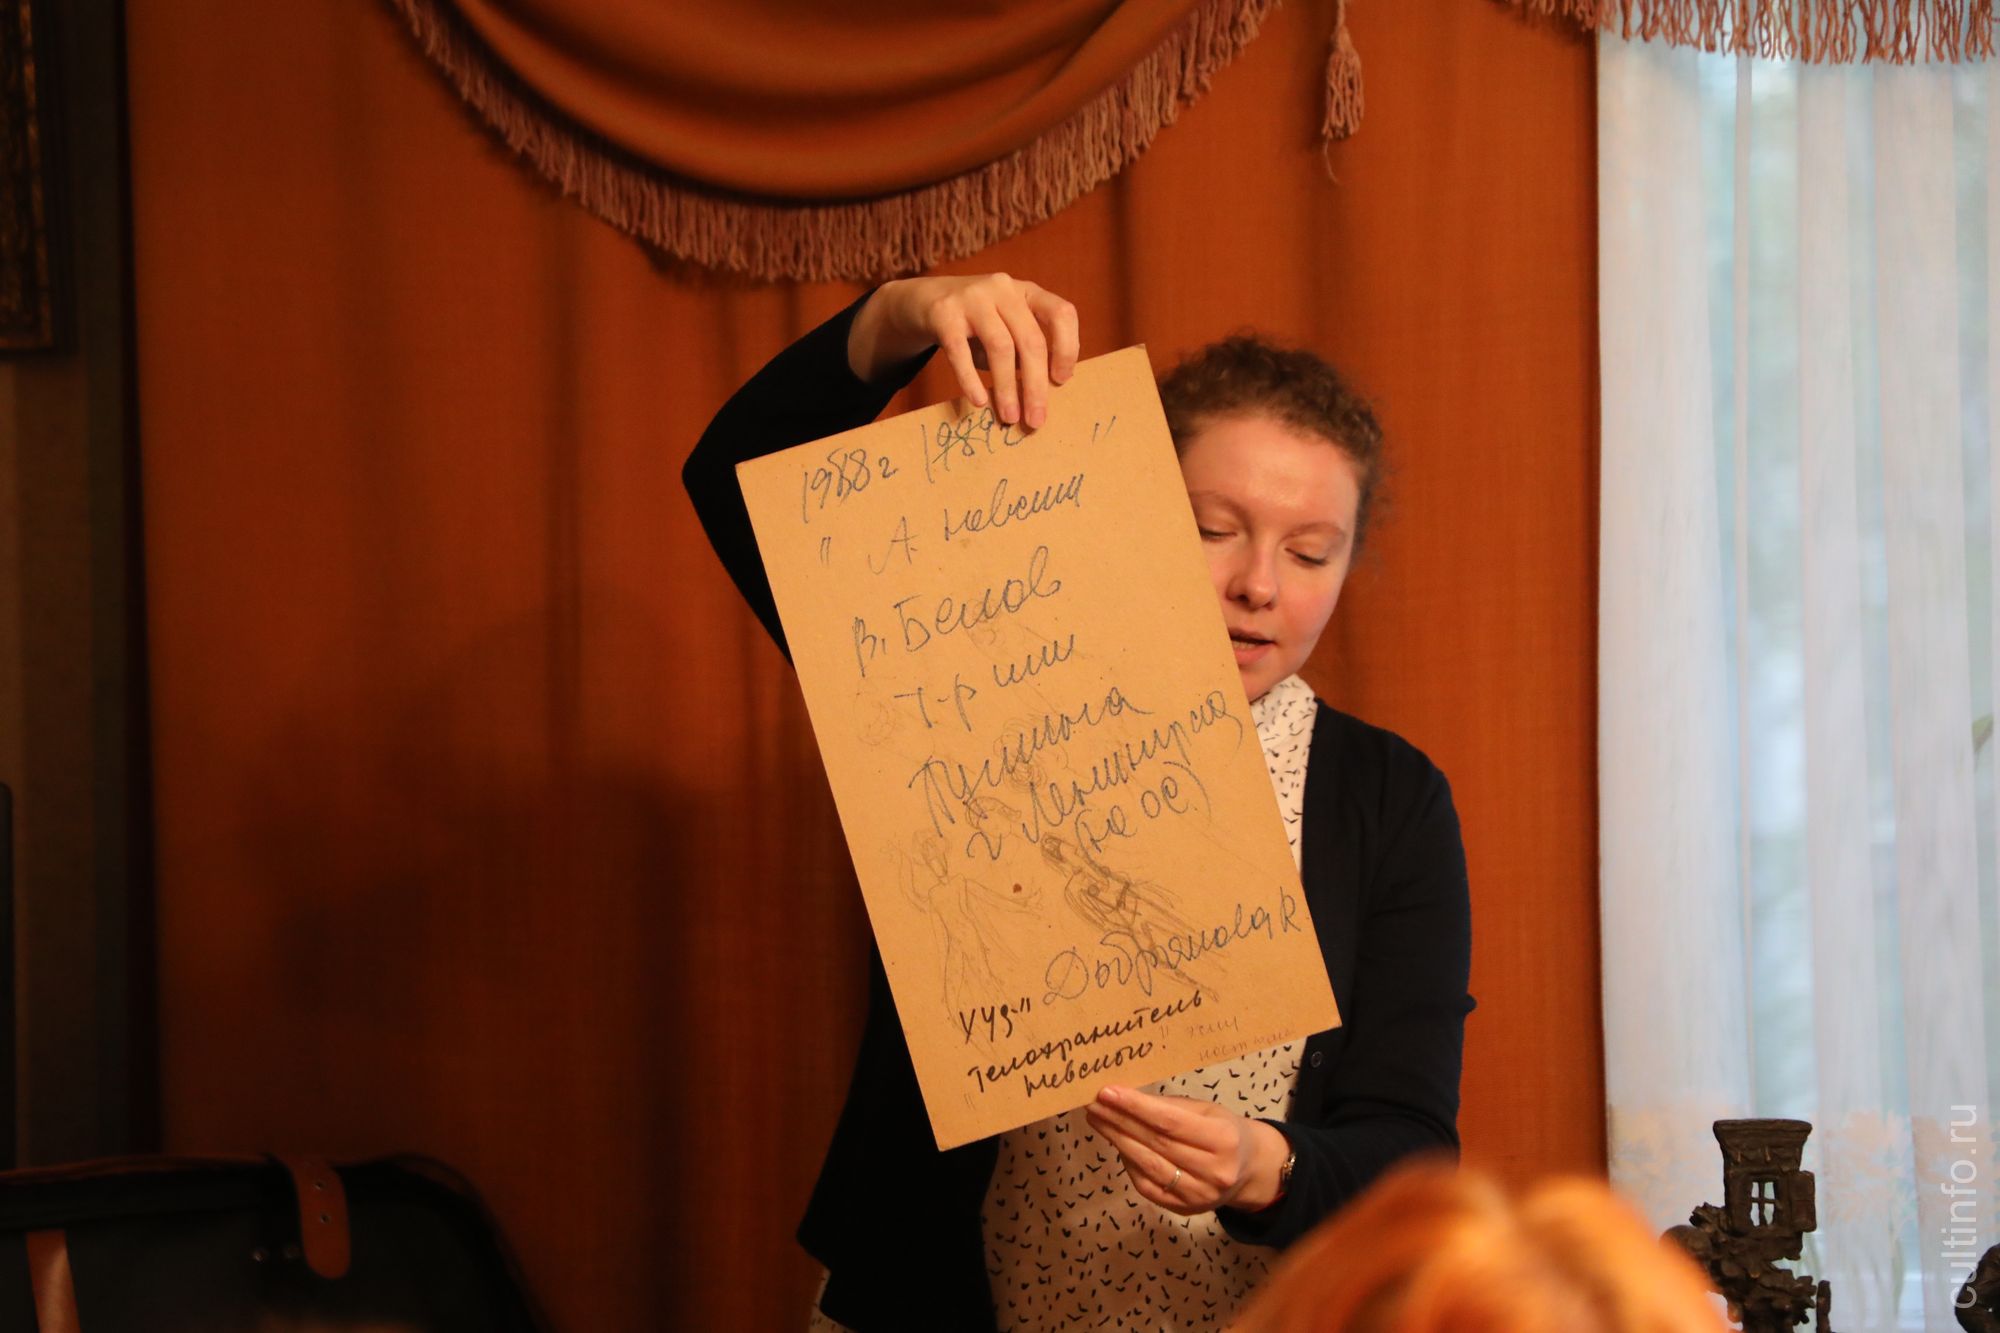 1988г 1989г
"А. Невский"
В. Белов
т-р им
Пушкина
г Ленинград
(на ОС)
Добрякова Я.
худ-
"Телохранитель
Невского"
cultinfo.ru